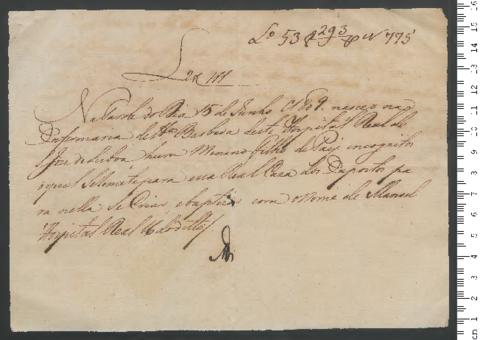 Lo 53 f 293 N 775
Na tarde do Dia 15 de Junho 1809. nasceo na
Enfermaria de Sta Barbara deste Hospital Real de
S. Joze de Lisboa, hum Menino filho de Pays incognitos
o qual se Remete para essa Real Caza dos Expostos pa
ra nella se Criar, e baptizar com o Nome de Manoel
Hospital Real